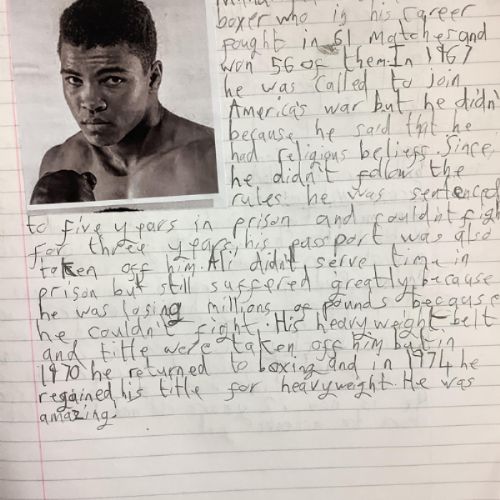 boxer who in his career
fought in 61 matches and
won 56 of them. In 1967
he was called to join
America's war but he didn'
because he said that he
had religious beliefs. Since
he didn't follow the
rules he was sentenced
to five years in prison and couldn't figh
for three years, his passport was also
taken off him. Ali didn't serve time in
prison but still suffered greatly because
he was losing millions of pounds because
he couldn't fight. His heavyweight belt
and title were taken off him but in
1970 he returned to boxing and in 1974 he
regained his title for heavyweight. He was
amazing.